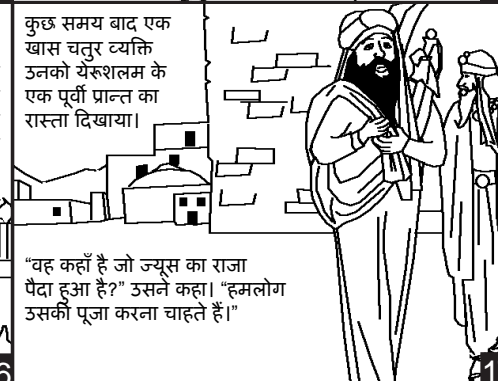 कुछ समय बाद एक
खास चतुर व्यक्ति
उनको येरूशलम के
एक पूर्वी प्रान्त का
रास्ता दिखाया।
“वह कहाँ है जो ज्यूस का राजा
पैदा हुआ है?” उसने कहा। “हमलोग
उसकी पूजा करना चाहते हैं।”
6
1